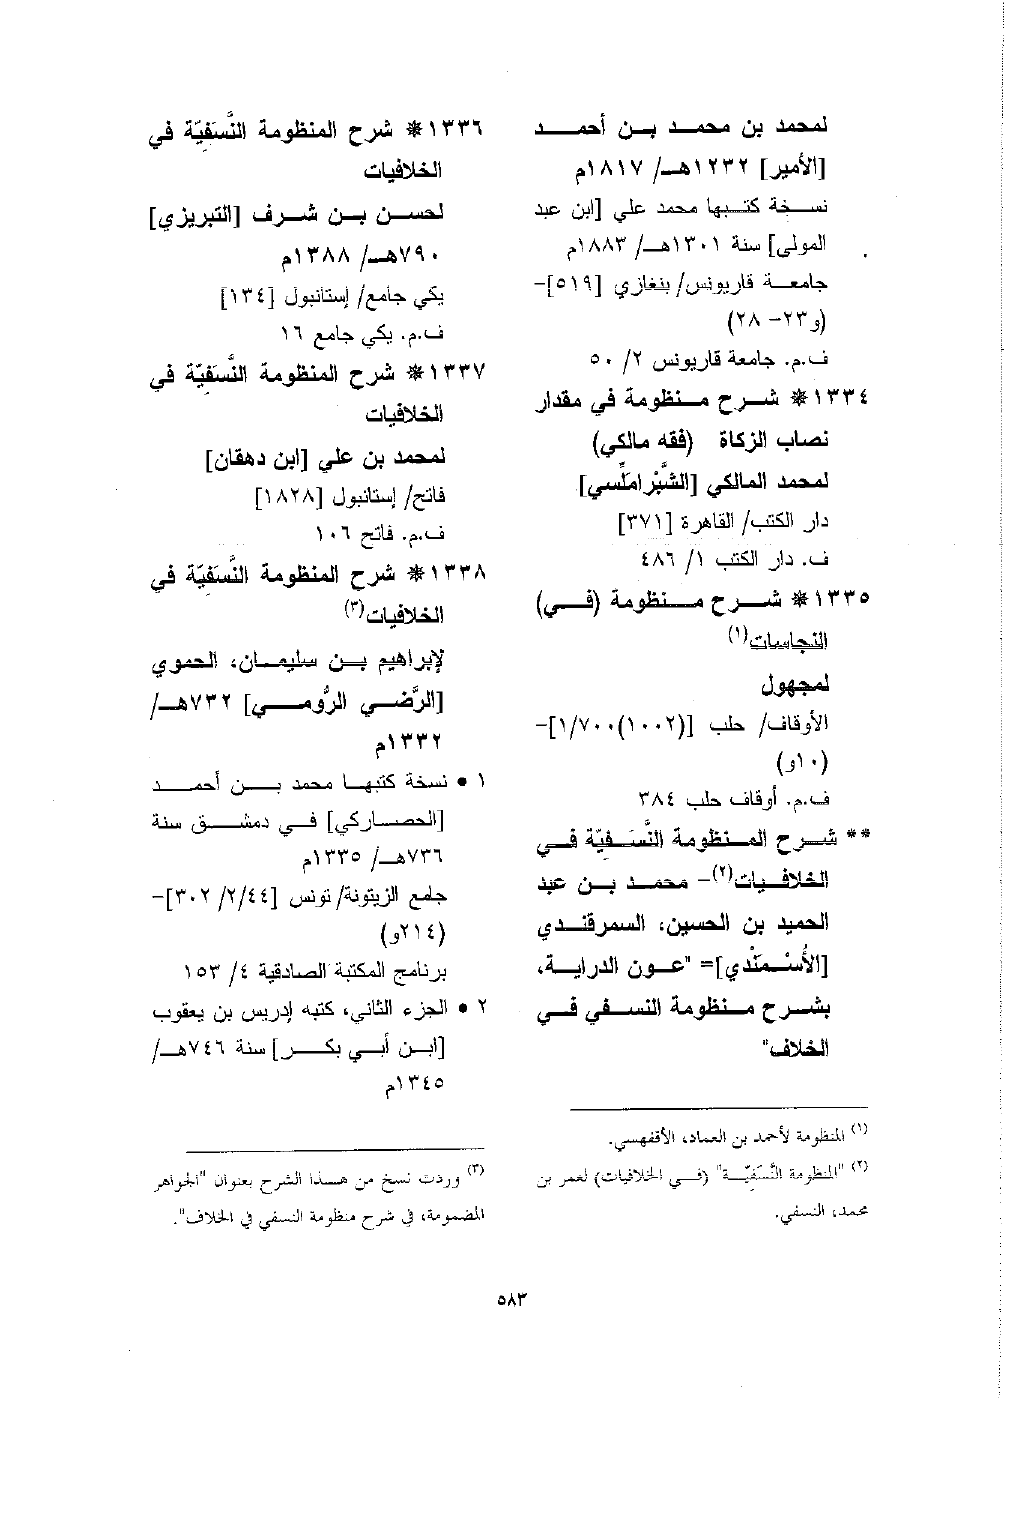 لمحمد بن محمد بن أحمد
[الأمير] ١٢٣٢هـ/ ١٨١٧م
نسخة كتبها محمد علي [ابن عبد
المولى] سنة ١٣٠١هـ/ ١٨٨٣م
جامعة قاريونس/ بنغازي [٥١٩]-
(و٢٣- ٢٨)
ف.م. جامعة قاريونس ٢/ ٥٠
١٣٣٤* شرح منظومة في مقدار
نصاب الزكاة (فقه مالكي)
لمحمد المالكي [الشَّبْرامَلِّسي]
دار الكتب/ القاهرة [٣٧١]
ف. دار الكتب ١/ ٤٨٦
١٣٣٥* شرح منظومة (في)
النجاسات(١)
لمجهول
الأوقاف/ حلب [(١٠٠٢)١/٧٠٠]-
(١٠و)
ف.م. أوقاف حلب ٣٨٤
** شرح المنظومة النَّسَفِيّة في
الخلافيات(٢)- محمد بن عبد
الحميد بن الحسين، السمرقندي
[الأُسْمَنْدي]= "عون الدراية،
بشرح منظومة النسفي في
الخلاف"
(١) المنظومة لأحمد بن العماد، الأقفهسي.
(٢) "المنظومة النَّسَفِيّة" (في الخلافيات) لعمر بن
محمد، النسفي.
١٣٣٦* شرح المنظومة النَّسَفِيّة في
الخلافيات
لحسن بن شرف [التبريزي]
٧٩٠هـ/ ١٣٨٨م
يكي جامع/ إستانبول [١٣٤]
ف.م. يكي جامع ١٦
١٣٣٧* شرح المنظومة النَّسَفِيّة في
الخلافيات
لمحمد بن علي [ابن دهقان]
فاتح/ إستانبول [١٨٢٨]
ف.م. فاتح ١٠٦
١٣٣٨* شرح المنظومة النَّسَفِيّة في
الخلافيات(٣)
لإبراهيم بن سليمان، الحموي
[الرَّضي الرُّومي] ٧٣٢هـ/
١٣٣٢م
١ • نسخة كتبها محمد بن أحمد
[الحصاركي] في دمشق سنة
٧٣٦هـ/ ١٣٣٥م
جامع الزيتونة/ تونس [٢/٤٤/ ٣٠٢]-
(٢١٤و)
برنامج المكتبة الصادقية ٤/ ١٥٣
٢ • الجزء الثاني، كتبه إدريس بن يعقوب
[ابن أبي بكر] سنة ٧٤٦هـ/
١٣٤٥م
(٣) وردت نسخ من هذا الشرح بعنوان "الجواهر
المضمومة، في شرح منظومة النسفي في الخلاف".
٥٨٣